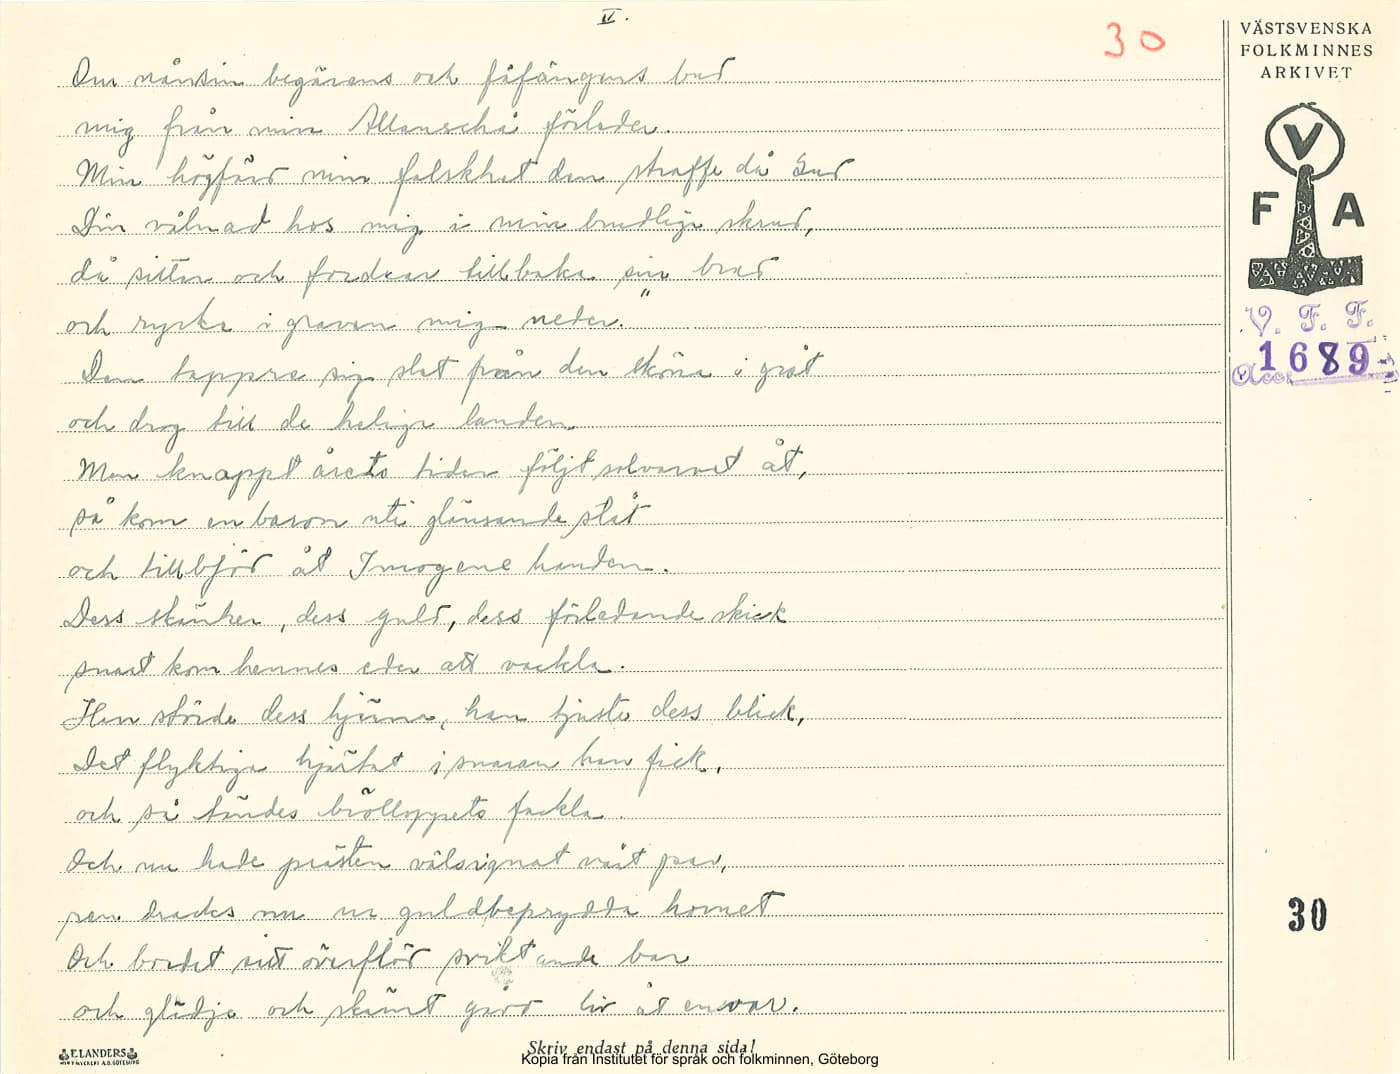 IV.
30
VÄSTSVENSKA
FOLKMINNES
ARKIVET
V
F A
V. F. F.
Acc. 1689
Om nånsin begärens och fåfängans bud
mig från min Allonscha förleder.
Min högfärd min falskhet den straffe då Gud
Din vålnad hos mig i min brudliga skrud,
då sitter och fordrar tillbaka sin brud
och rycke i graven mig neder."
Den tappre sig slet från den sköna i gråt
och drog till de heliga landen
Men knappt årets tider följt solvarvet åt,
så kom en baron uti glänsande ståt
och tillbjöd åt Imogene handen.
Dess skänker, dess guld, dess förledande skick
snart kom hennes eder att vackla.
Han störde dess hjärna, han tjuste dess blick,
Det flyktiga hjärtat i snaran han fick,
och så tändes brölloppets fackla.
Och nu hade prästen välsignat vårt par,
ren dracks nu ur guldbeprydda hornet
Och bordet sitt överflöd sviktande bar
och glädje och skämt gåvo liv åt envar.
30
F. LANDERS
Skriv endast på denna sida!
Kopia från Institutet för språk och folkminnen, Göteborg